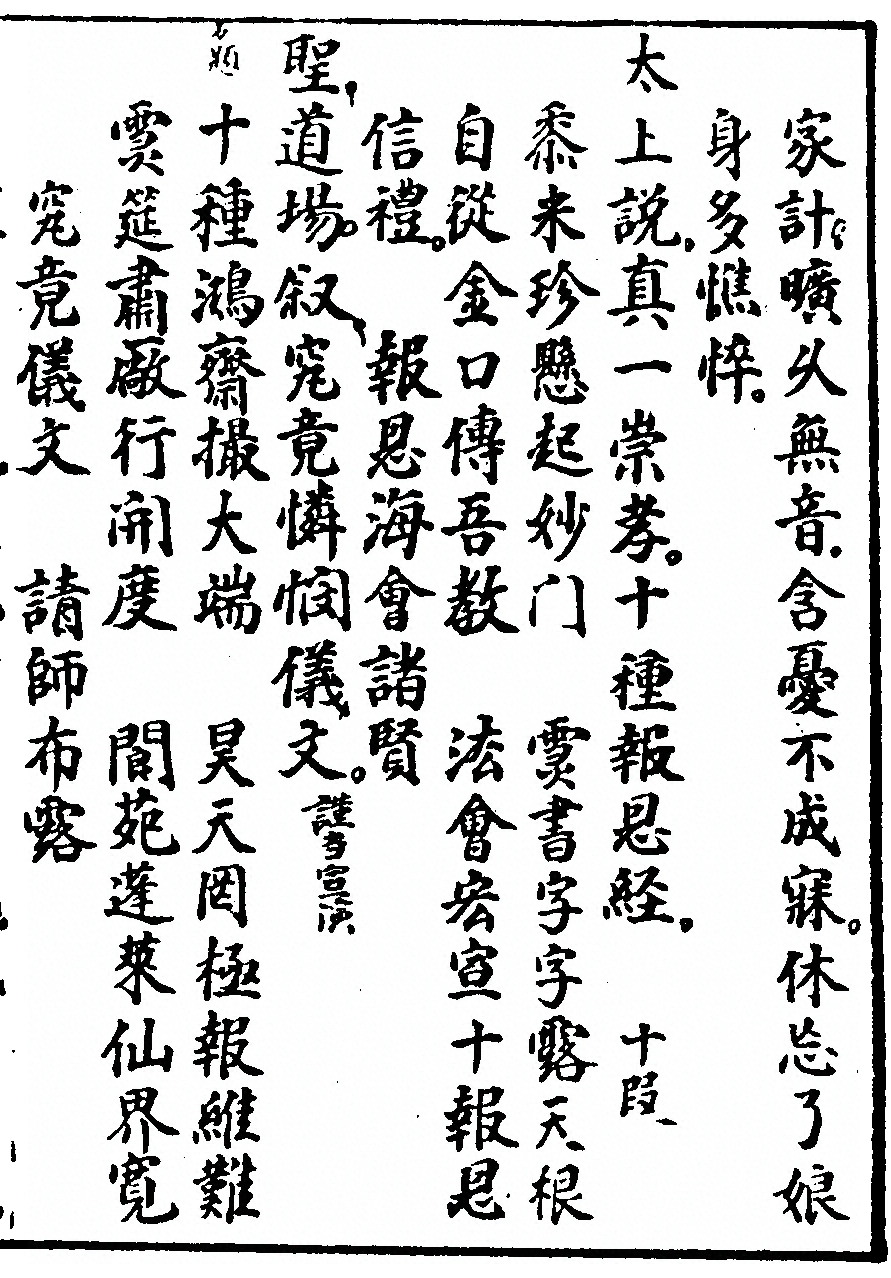 家計曠久無音含憂不成寐休忘了娘
身多憔悴
太上説真一崇孝十種報恩経 十段
黍米珍懸起妙门 霛書字字露天根
自從金口傳吾教 法會宏宣十報恩
信禮 報恩海會諸賢
聖道場叙究竟憐憫儀文 謹與宣演
十種鴻齋撮大端 昊天罔極報維難
霛筵肅啟行開度 閬苑蓬萊仙界寬
究竟儀文 請師布露